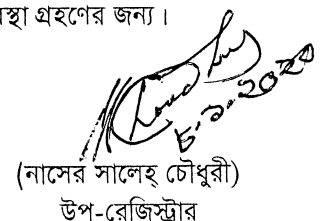 স্থা গ্রহণের জন্য।
৮.১.২০২০
(নাসের সালেহ্ চৌধুরী)
উপ-রেজিস্ট্রার